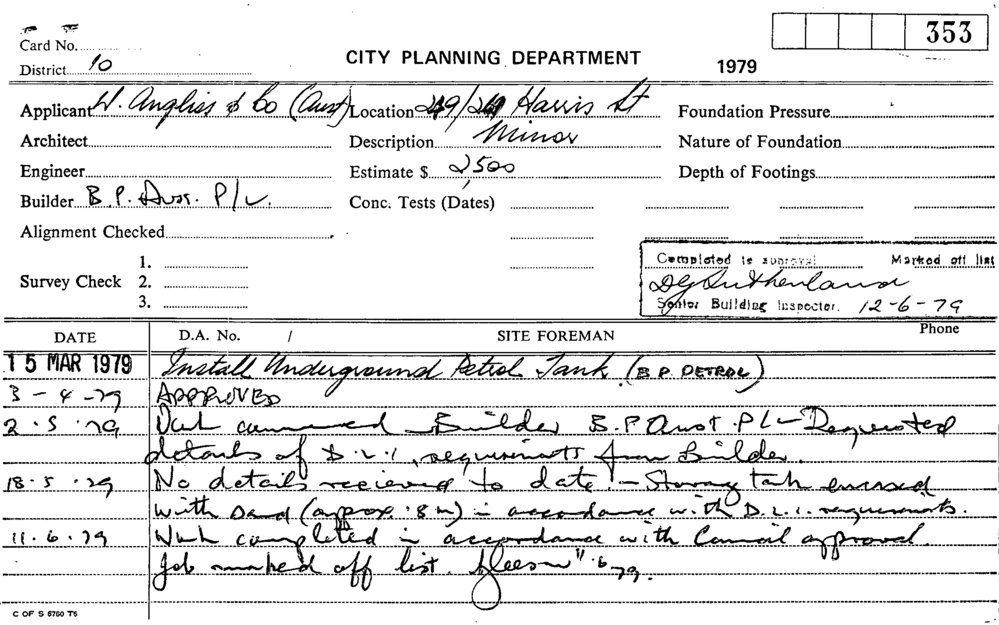 353
Card No.
CITY PLANNING DEPARTMENT 1979
District 10
Applicant W. Angliss & Co (Aust) Location 249/ Harris St Foundation Pressure
Architect Description Minor Nature of Foundation
Engineer Estimate $ 2,500 Depth of Footings
Builder B.P. Aust. P/L. Conc. Tests (Dates)
Alignment Checked
Survey Check 1. 2. 3.
Completed is approval Marked off list
DG Sutherland
Senior Building Inspector. 12-6-79
DATE D.A. No. / SITE FOREMAN Phone
15 MAR 1979 Install Underground Petrol Tank (B.P. PETROL)
3-4-79 APPROVED
2.5.79 Work commenced - Builder B.P Aust. P/L - Requested
details of D.L.I. requirements from Builder.
18.5.79 No details recieved to date - Storage tank encased
with sand (approx .8 m) in accordance with D.L.I. requirements.
11.6.79 Work completed in accordance with Council approval.
Job marked off list. 11.6.79.
C OF S 6760 T6